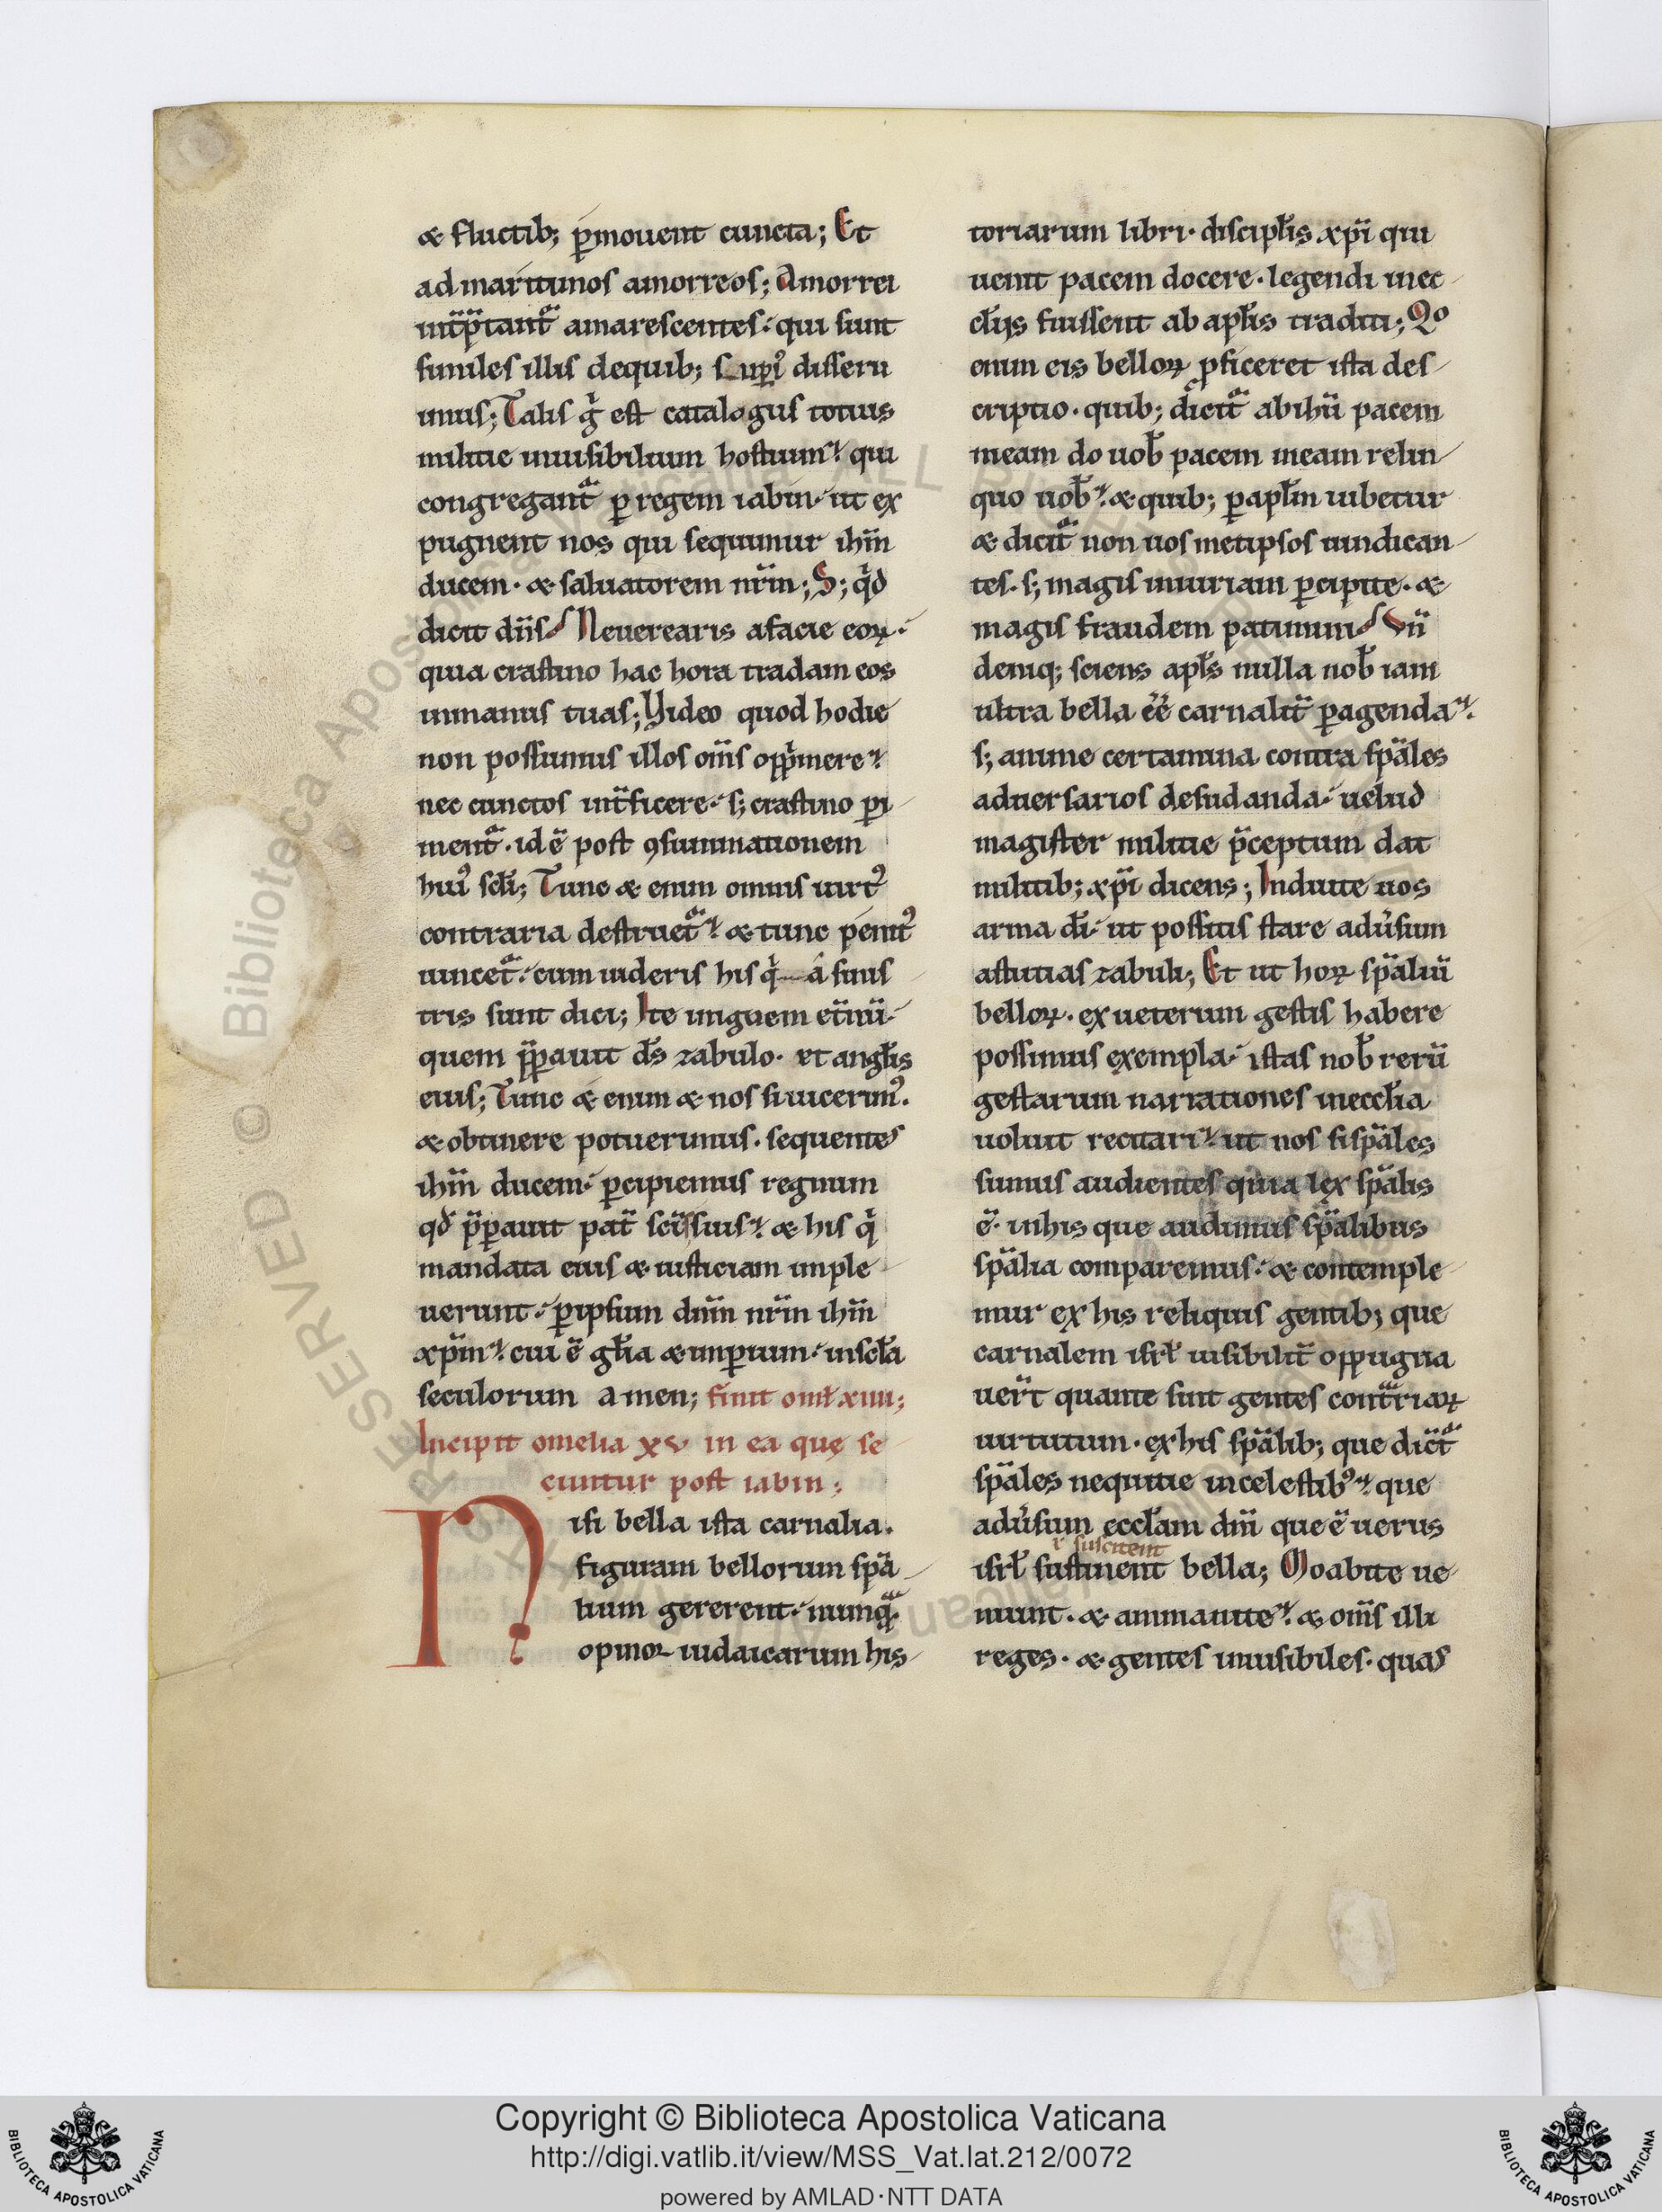 & fluctib; ꝑmouent cuncta; Et
ad maritimos amorreos; Amorrei
int̄p̄tant̄ amarescentes. qui sunt
similes illis de quib; supi᾽ disseru
imus; Talis g̊ est catalogus totius
militie inuisibilium hostium. qui
congregant̄ ꝑ regem iabin. ut ex
pugnent nos qui sequimur ihm̄
ducem. & saluatorem nr̄m; S; qd̓
dicit dn̄s Ne uerearis a facie eoꝝ.
quia crastino hac hora tradam eos
in manus tuas; Video quod hodie
non possumus illos om̄s opp̓mere
nec cunctos int̄ficere. s; crastino pi
ment̄. id ē post ꝯsummationem
hui᾽ scl̄i; Tunc & enim omnis uirt᾽
contraria destruet̄. & tunc penit᾽
uincet̄. cum uideris his q̓ a sinis
tris sunt dici; Ite in ignem et̄nū.
quem p̄parauit ds̄ zabulo. et angl̄is
eius; Tunc & enim & nos si uicerim᾽.
& obtinere potuerimus. sequentes
ihm̄ ducem. ꝑcipiemus regnum
qd̓ p̄parauit pat̄ scīs suis. & his q̓
mandata eius & iusticiam imple
uerunt. ꝑ ipsum dn̄m nr̄m ihm̄
xp̄m. cui ē gl̄ia & imꝑium. in scl̄a
seculorum amen; finit oml̄ xiiii;
Incipit omelia xv in ea quę se
cuntur post iabin;
Nisi bella ista carnalia.
figuram bellorum sp̄a
lium gererent. nunq̄.
opinor iudaicarum his
toriarum libri. discipl̄is xp̄i qui
uenit pacem docere. legendi in ec
cl̄ijs fuissent ab apl̄is traditi; Qo
enim eis belloꝝ ꝓficeret ista des
criptio. quib; dicit̄ ab ihū pacem
meam do uob̄ pacem meam relin
quo uob̄. & quib; ꝑ apl̄m iubetur
& dicit̄ non uos met ipsos uindican
tes. s; magis iniuriam ꝑcipite. &
magis fraudem patimini Vn̄
deniq; sciens apl̄s nulla nob̄ iam
ultra bella eē carnalit̄ ꝑagenda.
s; anime certamina contra sp̄ales
aduersarios desudanda. uelud
magister militie p̄ceptum dat
militib; xp̄i dicens; Induite uos
arma dī. ut possitis stare aduʼsum
astutias zabuli; Et ut hoꝝ sp̄aliū
belloꝝ. ex ueterum gestis habere
possimus exempla. istas nob̄ rerū
gestarum narrationes in eccl̄ia
uoluit recitari. ut nos si sp̄ales
sumus audientes quia lex sp̄alis
ē. in his que audimus sp̄alibus
sp̄alia comparemus. & contemple
mur ex his reliquis gentib; que
carnalem isrl̄ uisibilit̄ oppugna
uer̄t quante sint gentes cont̄riaꝝ
uirtutum. ex his sp̄alib; que dic̄t
sp̄ales nequitie in celestib᾽. que
aduʼsum eccl̄am dn̄i que ē uerus
ł suscitent
isrl̄ sustinent bella; Moabite ue
niunt. & ammanite. & om̄s illi
reges. & gentes inuisibiles. quas
Copyright © Biblioteca Apostolica Vaticana
http://digi.vatlib.it/view/MSS_Vat.lat.212/0072
powered by AMLAD·NTT DATA
BIBLIOTECA APOSTOLICA VATICANA
BIBLIOTECA APOSTOLICA VATICANA